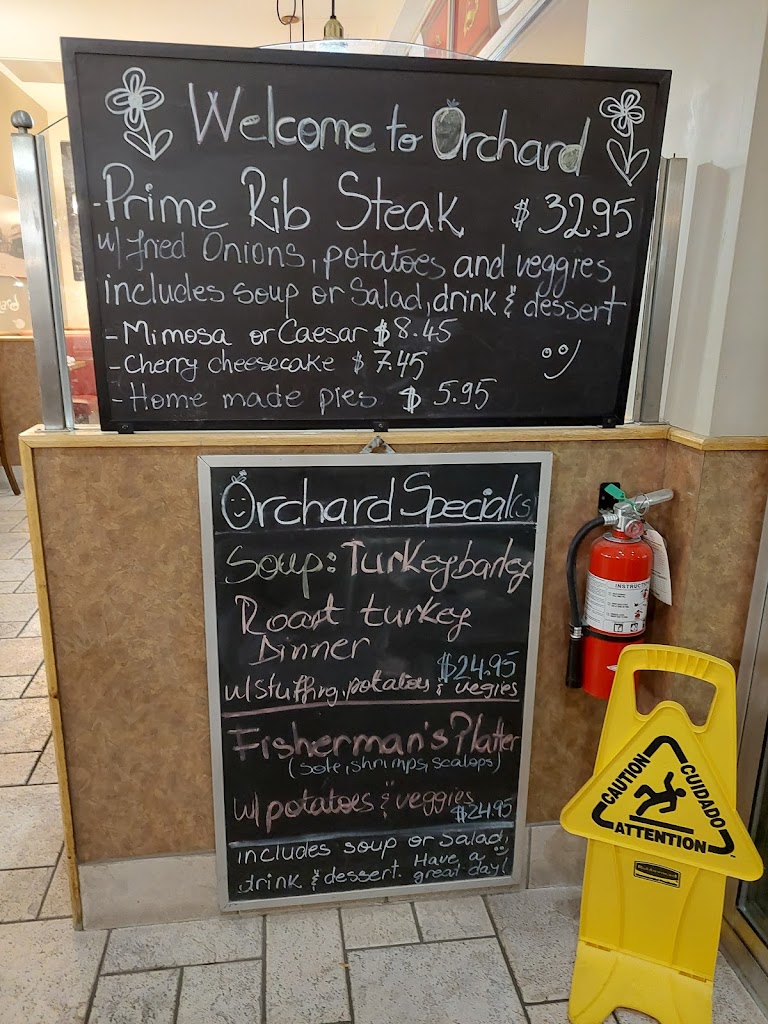 Welcome to Orchard
- Prime Rib Steak $32.95
w/ fried Onions, potatoes and veggies
includes soup or Salad, drink & dessert
- Mimosa or Caesar $8.45
- Cherry cheesecake $7.45
- Home made pies $5.95
Orchard Specials
Soup: Turkey barley
Roast turkey
Dinner
$24.95
w/ stuffing, potatoes & veggies
Fisherman's Platter
(sole, shrimps, scalops)
w/ potatoes & veggies
$24.95
includes soup or Salad,
drink & dessert. Have a
great day!
INSTRUCTIONS
CAUTION
CUIDADO
ATTENTION
Rubbermaid